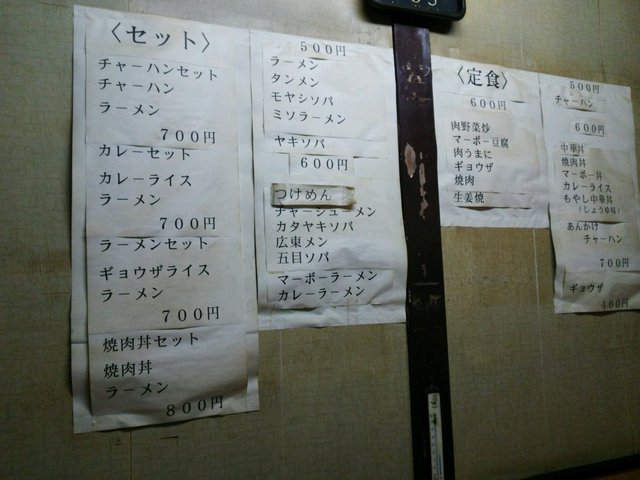 〈セット〉
チャーハンセット
チャーハン
ラーメン
700円
カレーセット
カレーライス
ラーメン
700円
ラーメンセット
ギョウザライス
ラーメン
700円
焼肉丼セット
焼肉丼
ラーメン
800円
500円
ラーメン
タンメン
モヤシソバ
ミソラーメン
ヤキソバ
600円
つけめん
チャーシューメン
カタヤキソバ
広東メン
五目ソバ
マーボーラーメン
カレーラーメン
〈定食〉
600円
肉野菜炒
マーボー豆腐
肉うまに
ギョウザ
焼肉
生姜焼
500円
チャーハン
600円
中華丼
焼肉丼
マーボー丼
カレーライス
もやし中華丼
(しょうゆ味)
あんかけ
チャーハン
700円
ギョウザ
400円